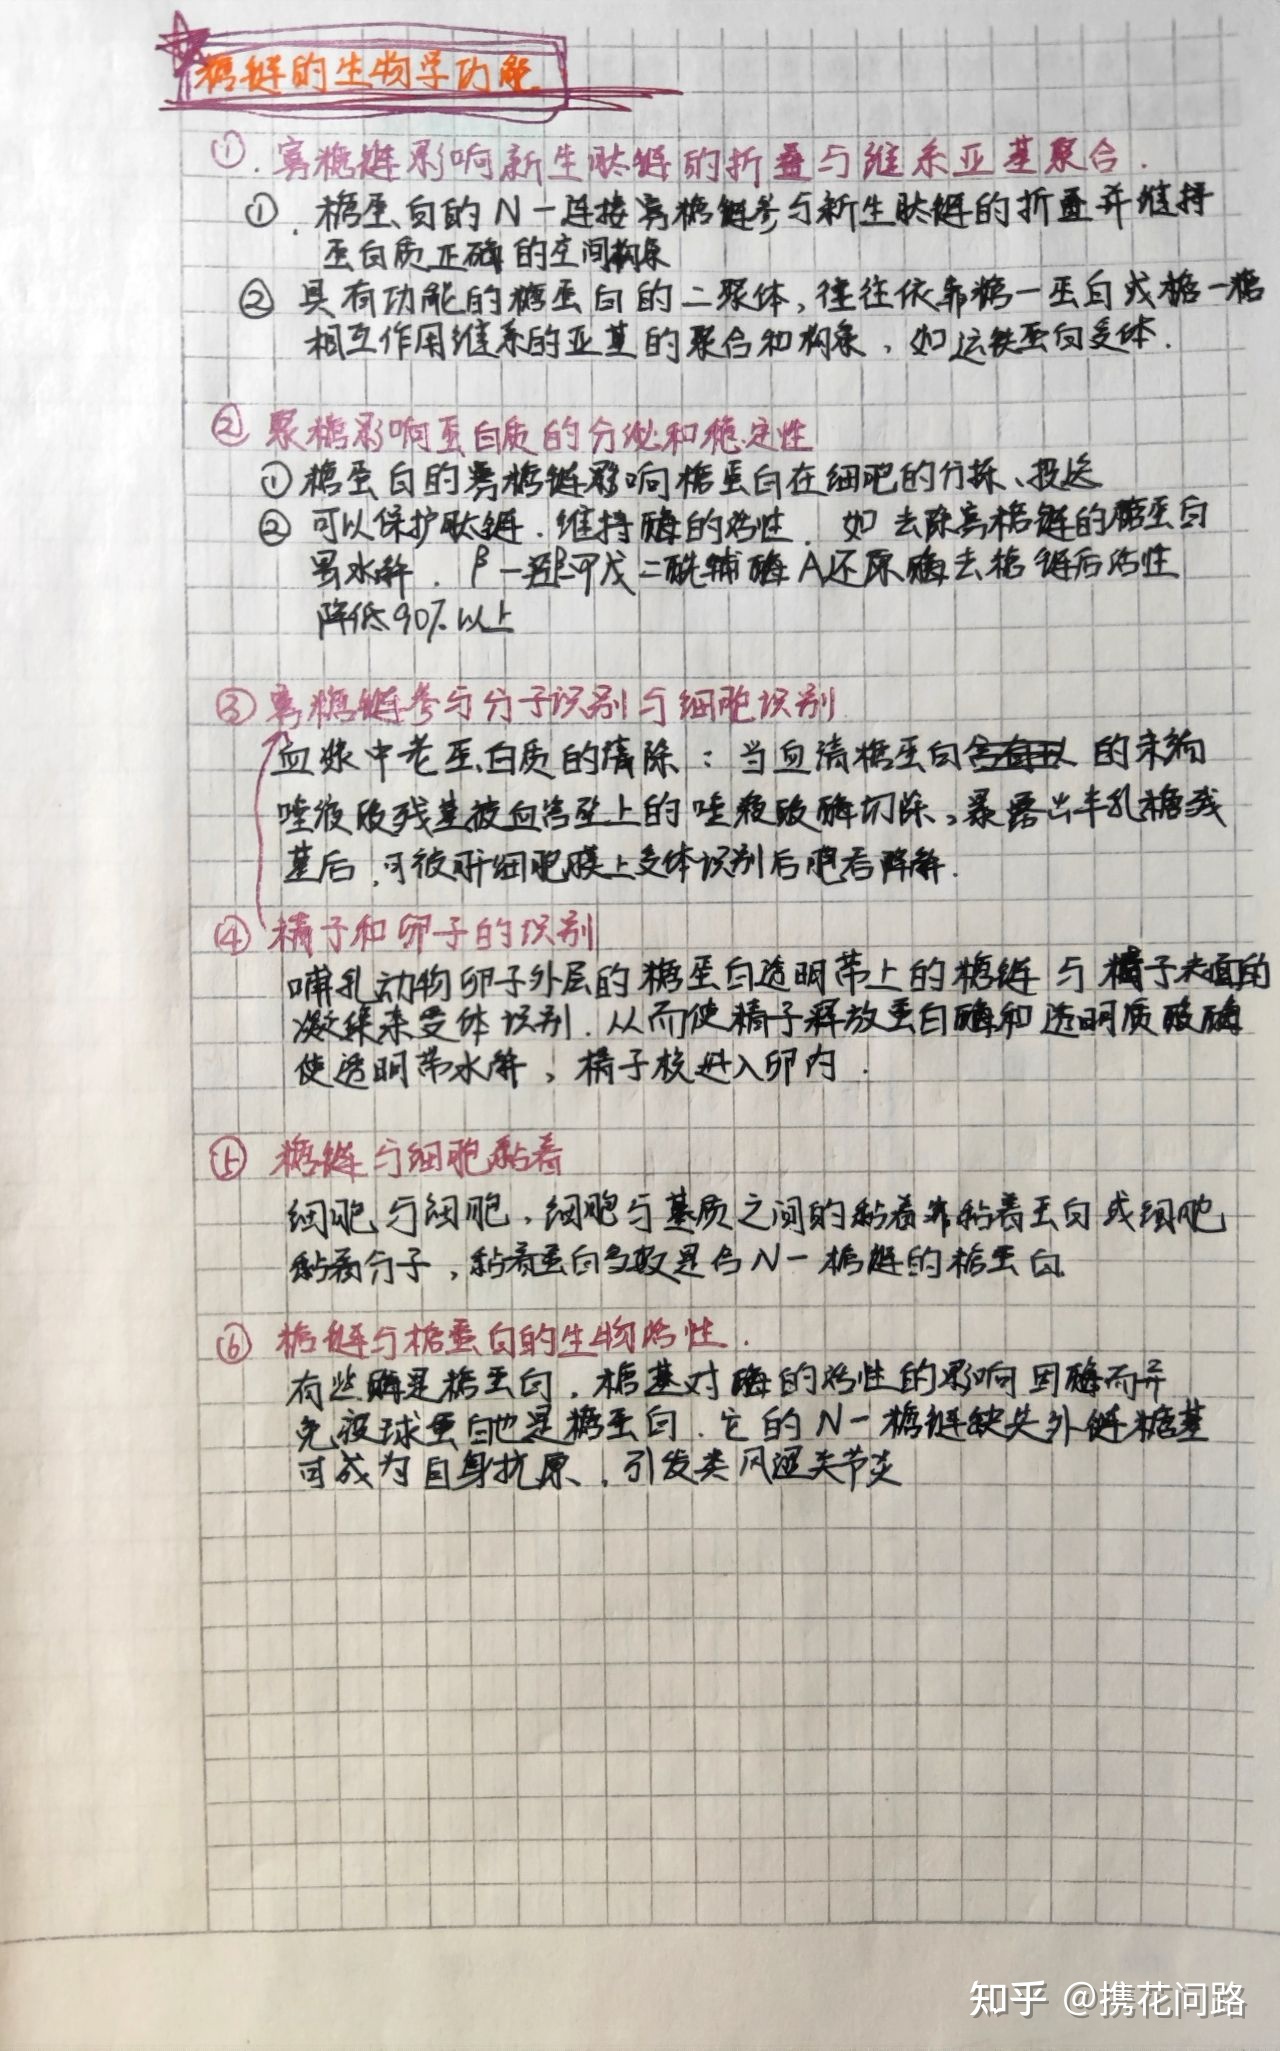 糖链的生物学功能
①. 寡糖链影响新生肽链的折叠与维系亚基聚合.
①. 糖蛋白的N一连接寡糖链参与新生肽链的折叠并维持
蛋白质正确的空间构象
② 具有功能的糖蛋白的二聚体,往往依靠糖一蛋白或糖一糖
相互作用维系的亚基的聚合和构象,如运铁蛋白受体.
② 聚糖影响蛋白质的分泌和稳定性
① 糖蛋白的寡糖链影响糖蛋白在细胞的分拣、投送
② 可以保护肽链.维持酶的活性.如去除寡糖链的糖蛋白
易水解.β一羟β-甲戊二酰辅酶A还原酶去糖链后活性
降低90%以上
③ 寡糖链参与分子识别与细胞识别
血浆中老蛋白质的清除:当血清糖蛋白的末端
唾液酸残基被血管壁上的唾液酸酶切除,暴露出半乳糖残
基后,可被肝细胞膜上受体识别后胞吞降解.
④ 精子和卵子的识别
哺乳动物卵子外层的糖蛋白透明带上的糖链与精子表面的
凝集素受体识别.从而使精子释放蛋白酶和透明质酸酶
使透明带水解,精子核进入卵内.
⑤ 糖链与细胞黏着
细胞与细胞,细胞与基质之间的黏着靠黏着蛋白或细胞
黏着分子,黏着蛋白多数是含N一糖链的糖蛋白
⑥ 糖链与糖蛋白的生物活性.
有些酶是糖蛋白.糖基对酶的活性的影响因酶而异
免疫球蛋白也是糖蛋白.它的N一糖链缺失外链糖基
可成为自身抗原,引发类风湿关节炎
知乎 @携花问路